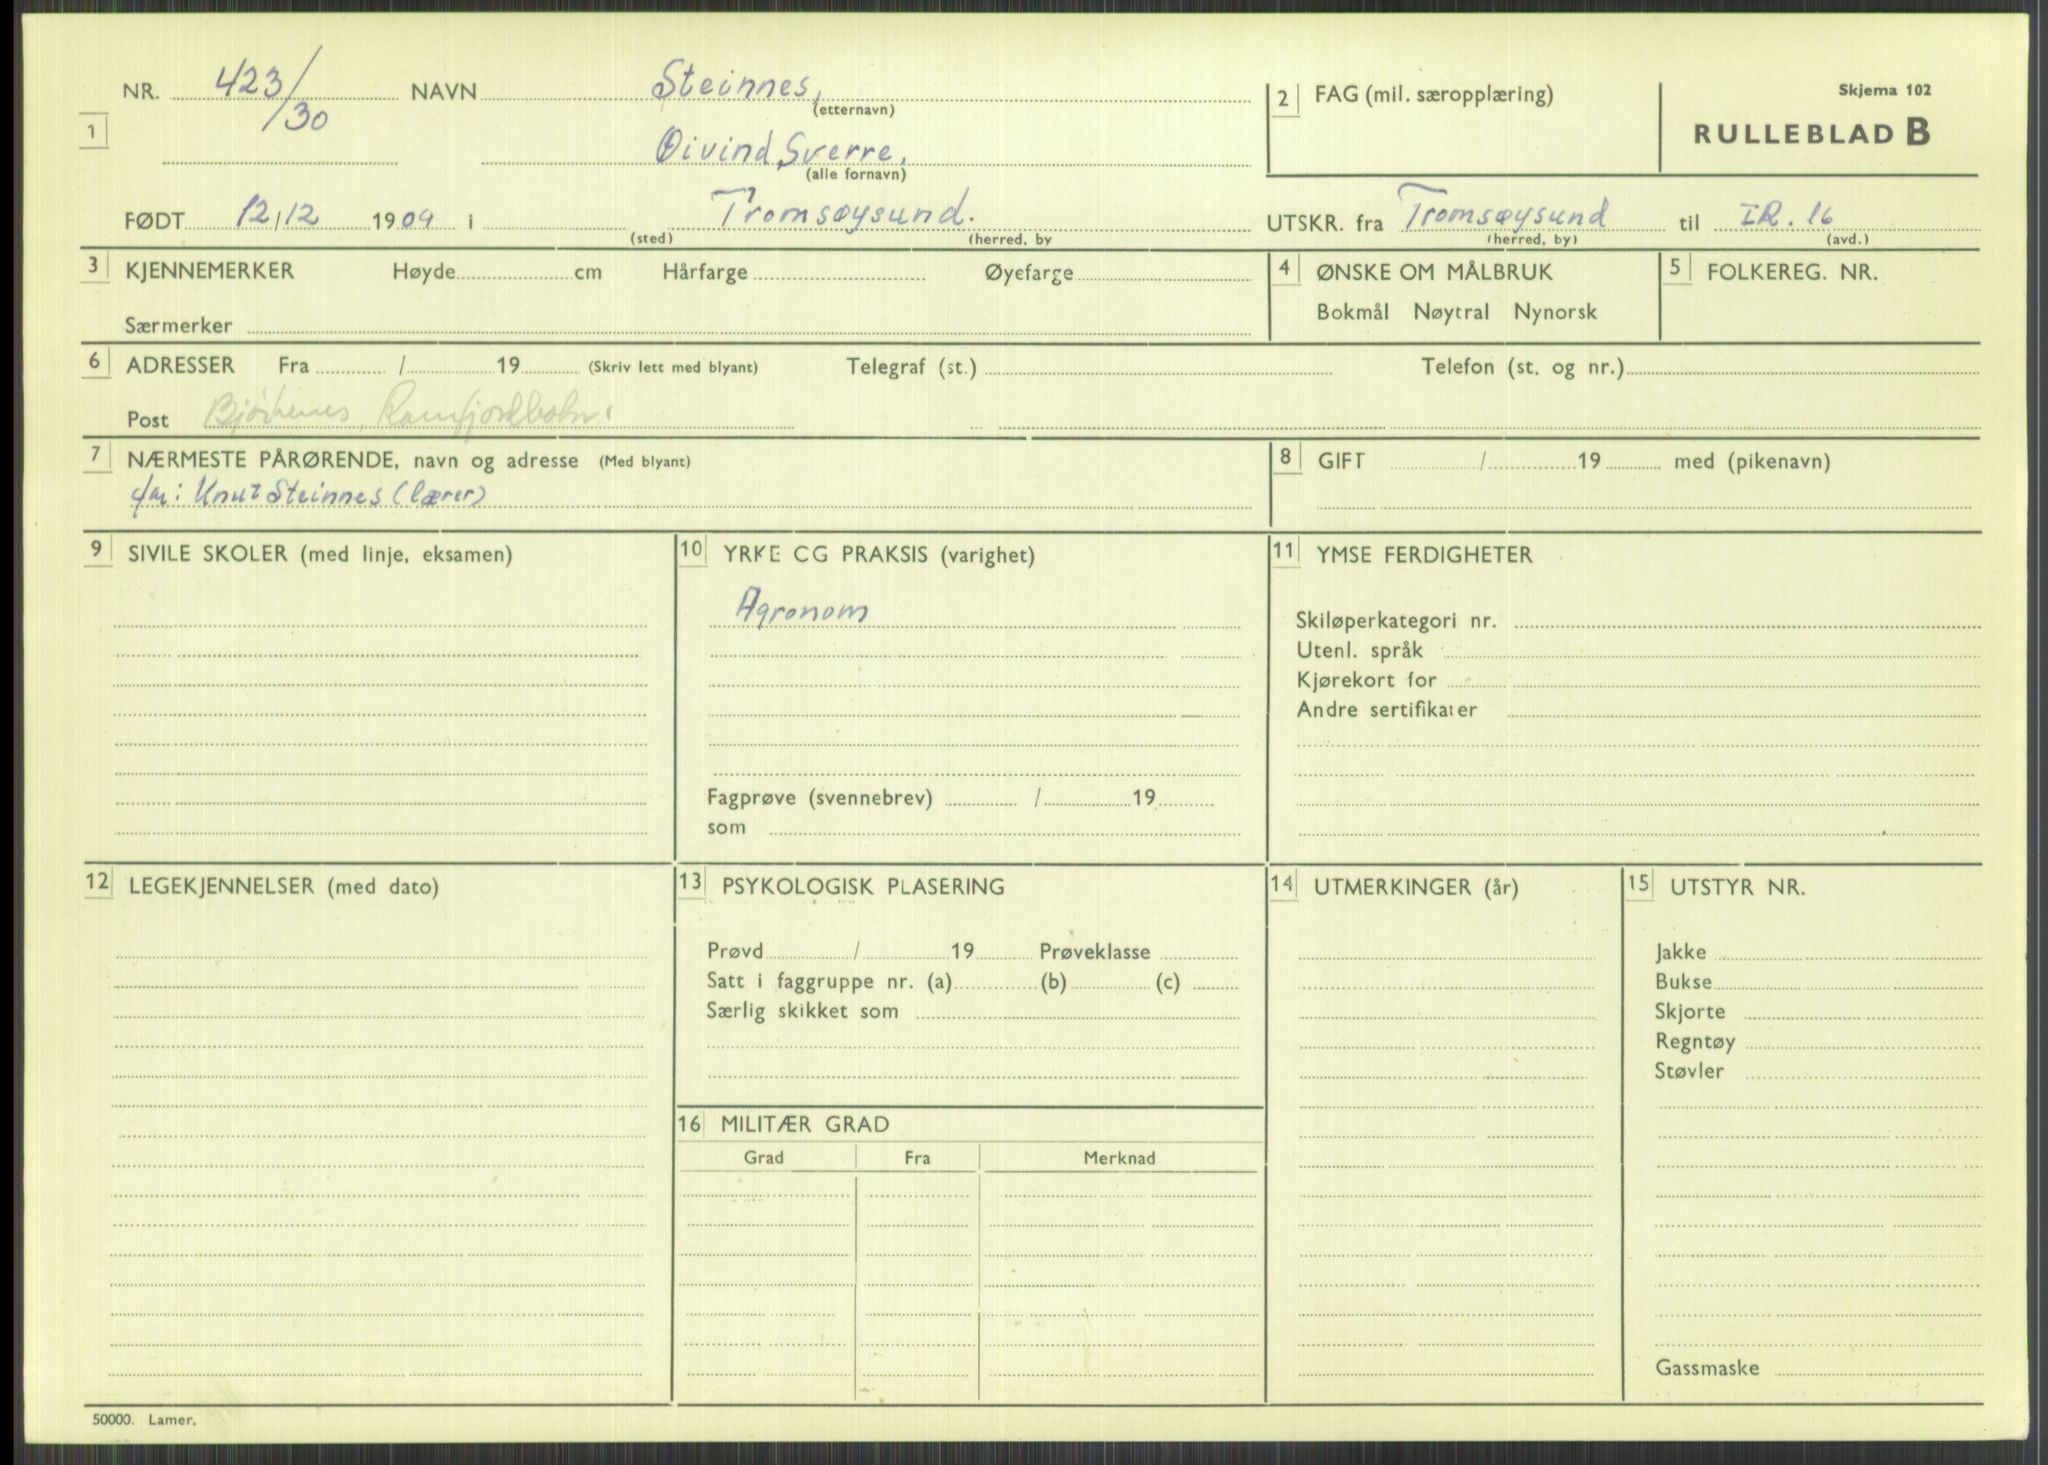 NR. 423/30 NAVN Steinnes, (etternavn)
1
Øivind Sverre, (alle fornavn)
FØDT 12/12 1909 i Tromsøysund. (sted) (herred, by
2 FAG (mil. særopplæring)
Skjema 102
RULLEBLAD B
UTSKR. fra Tromsøysund (herred, by) til IR. 16 (avd.)
3 KJENNEMERKER Høyde cm Hårfarge Øyefarge
Særmerker
4 ØNSKE OM MÅLBRUK
Bokmål Nøytral Nynorsk
5 FOLKEREG. NR.
6 ADRESSER Fra / 19 (Skriv lett med blyant) Telegraf (st.) Telefon (st. og nr.)
Post
7 NÆRMESTE PÅRØRENDE, navn og adresse (Med blyant)
far: Knut Steinnes (lærer)
8 GIFT / 19 med (pikenavn)
9 SIVILE SKOLER (med linje, eksamen)
10 YRKE CG PRAKSIS (varighet)
Agronom
Fagprøve (svennebrev) / 19
som
11 YMSE FERDIGHETER
Skiløperkategori nr.
Utenl. språk
Kjørekort for
Andre sertifikater
12 LEGEKJENNELSER (med dato)
13 PSYKOLOGISK PLASERING
Prøvd / 19 Prøveklasse
Satt i faggruppe nr. (a) (b) (c)
Særlig skikket som
14 UTMERKINGER (år)
15 UTSTYR NR.
Jakke
Bukse
Skjorte
Regntøy
Støvler
Gassmaske
16 MILITÆR GRAD
Grad Fra Merknad
50000. Lamer.